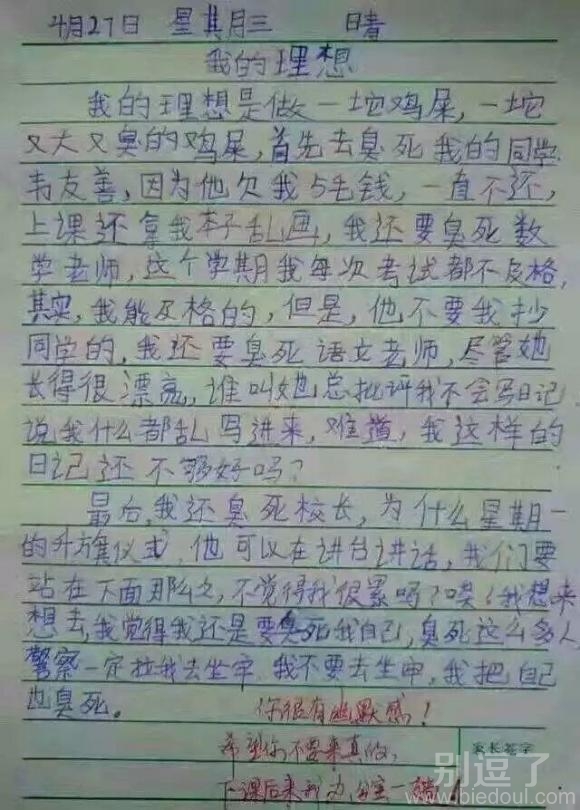 4月27日 星其月三 晴
我的理想
我的理想是做一坨鸡屎,一坨
又大又臭的鸡屎,首先去臭死我的同学
韦友善,因为他欠我5毛钱,一直不还,
上课还拿我本子乱画,我还要臭死数
学老师,这个学期我每次考试都不及格,
其实,我能及格的,但是,他不要我抄
同学的,我还要臭死语文老师,尽管她
长得很漂亮,谁叫她总批评我不会写日记
说我什么都乱写进来,难道,我这样的
日记还不够好吗?
最后,我还臭死校长,为什么星期一
的升旗仪式,他可以在讲台讲话,我们要
站在下面那么久,不觉得我很累吗?唉!我想来
想去,我觉得我还是要臭死我自己,臭死这么多人,
警察一定拉我去坐牢,我不要去坐牢,我把自己
也臭死。
你很有幽默感!
希望你不要来真的,
家长签字
下课后来我办公室一趟
别逗了
www.biedoul.com